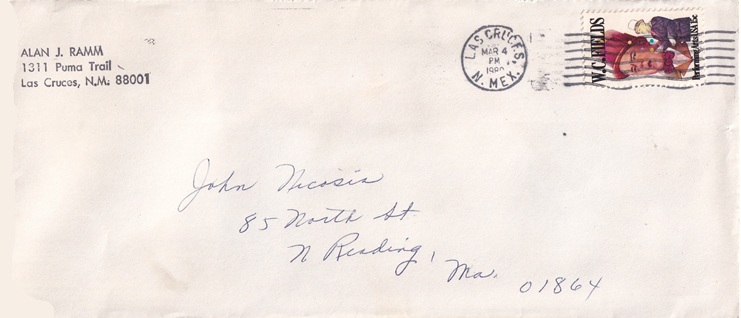 ALAN J. RAMM
1311 Puma Trail
Las Cruces, N.M. 88001
LAS CRUCES,
MAR 4
PM
N. MEX.
W.C. FIELDS
Performing Arts USA 15c
John Nicosia
85 North St.
N Reading, Ma. 01864